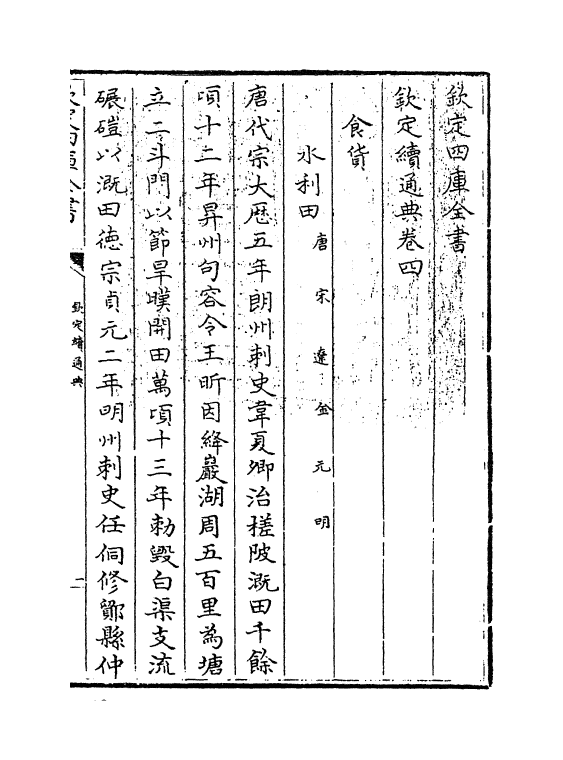 欽定四庫全書
欽定續通典卷四
食貨
水利田 唐 宋 遼 金 元 明
唐代宗大厯五年朗州刺史韋夏卿治槎陂溉田千餘
頃十二年昇州句容令王昕因絳巖湖周五百里為塘
立二斗門以節旱暵開田萬頃十三年勅毀白渠支流
碾磑以溉田徳宗貞元二年明州刺史任侗修鄮縣仲
欽定四庫全書
欽定續通典